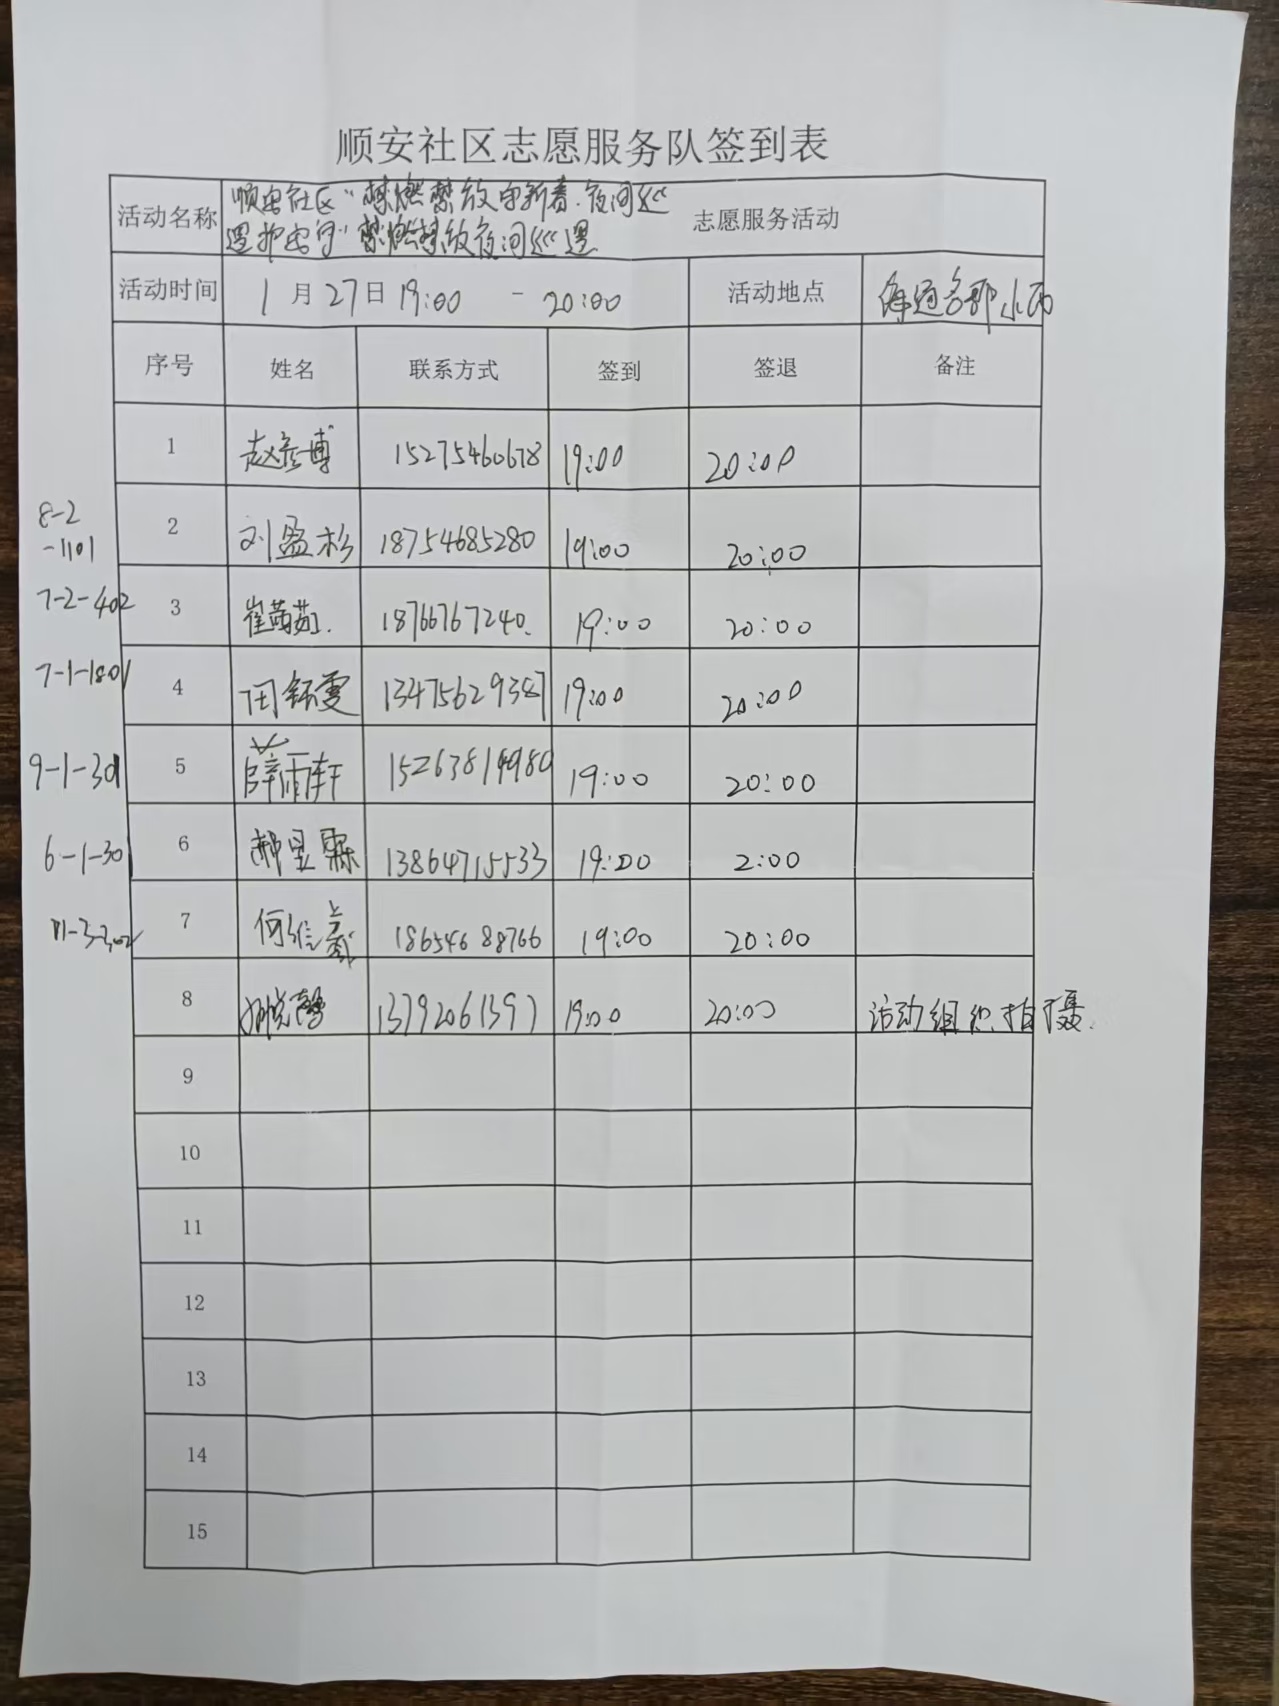 顺安社区志愿服务队签到表
活动名称 顺安社区"禁燃禁放守新春.夜间巡
逻护安宁"禁燃禁放夜间巡逻 志愿服务活动
活动时间 1月27日 19:00 - 20:00 活动地点 名郡小区
序号 姓名 联系方式 签到 签退 备注
1 赵彦博 15275460678 19:00 20:00
8-2
-1101
2 刘盈杉 18754685280 19:00 20:00
7-2-402 3 崔茜茹. 18766767240. 19:00 20:00
7-1-1801 4 田钰雯 13475629387 19:00 20:00
9-1-301 5 薛雨轩 15263819980 19:00 20:00
6-1-301 6 郝昱霖 13864715533 19:00 2:00
11-3-302 7 何维 18654688766 19:00 20:00
8 悦馨 13792061397 19:00 20:00 活动组织.拍摄.
9
10
11
12
13
14
15